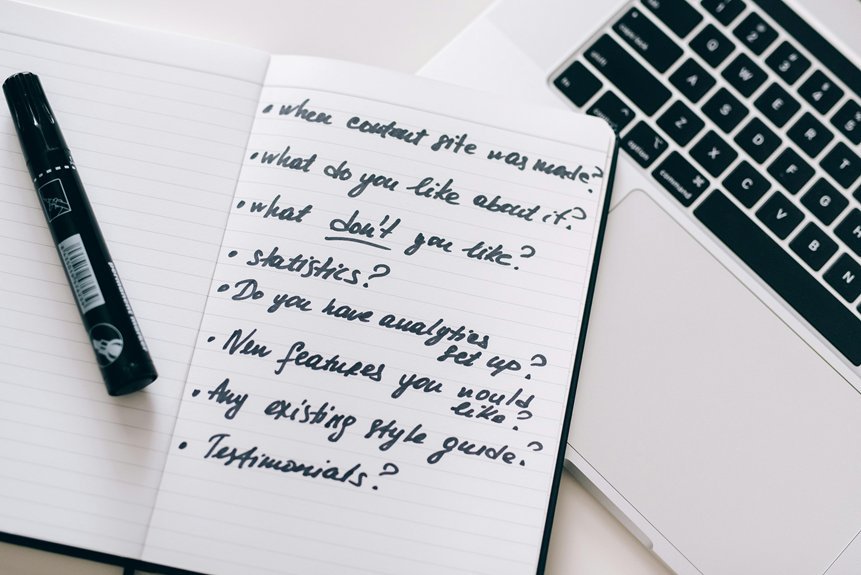 • when content site was made?
• what do you like about it?
• what don't you like?
• statistics?
• Do you have analytics
set up?
• New features you would
like?
• Any existing style guide?
• Testimonials?
1 2 3 4 5
Q W E R T
caps lock A S D F G
shift Z X C V B N
fn option command ⌘